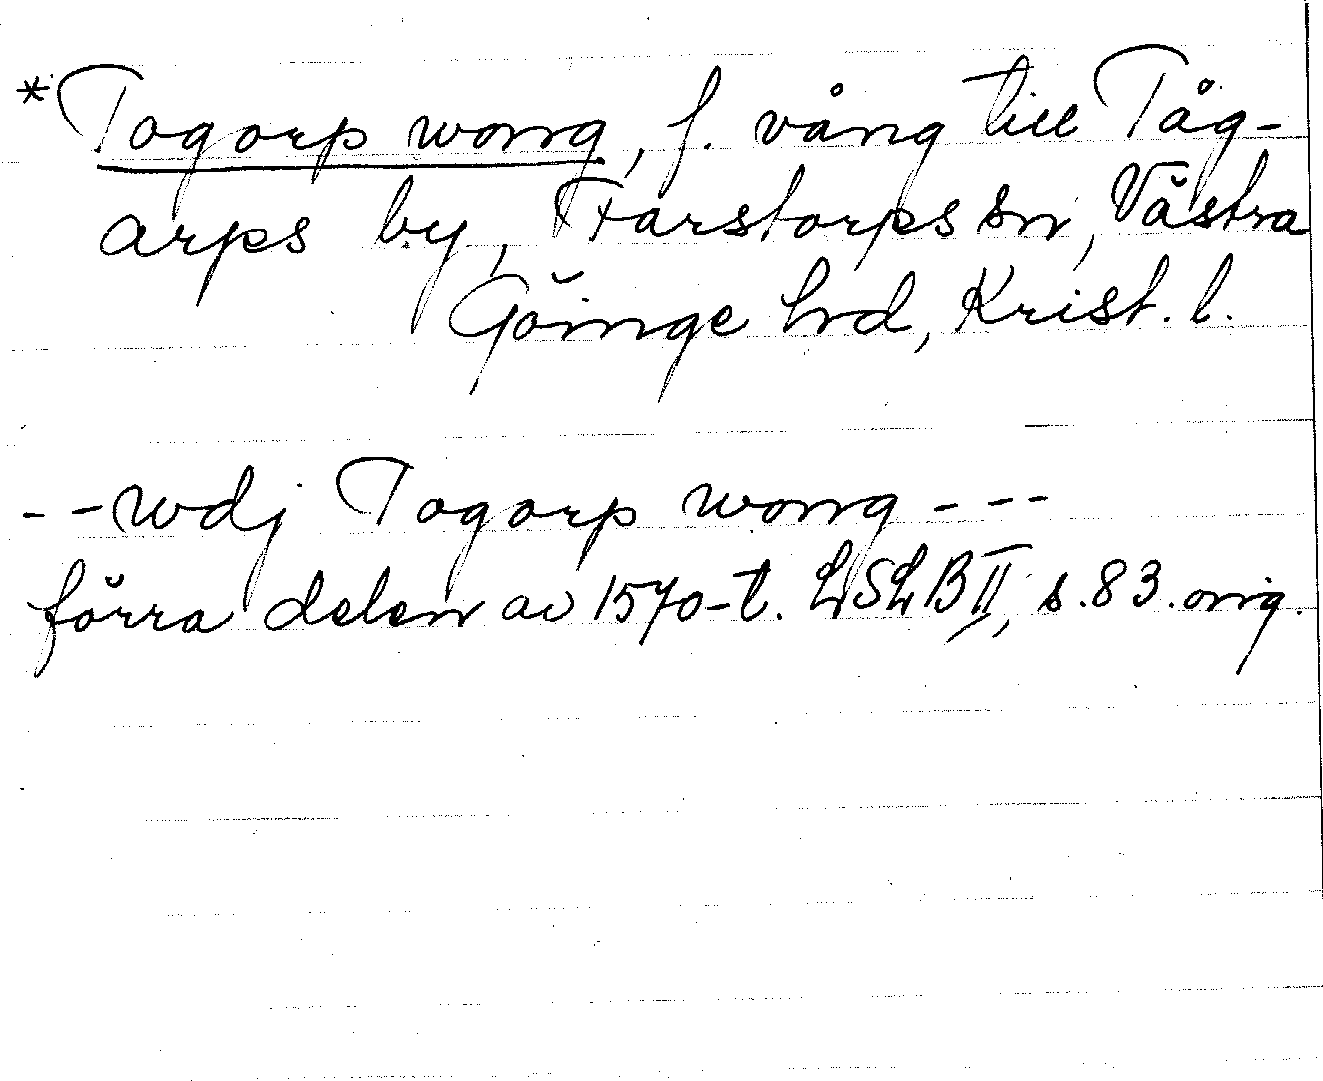 *Togorp wong, f. vång till Tåg-
arps by, Farstorps sn, Västra
Göinge hd, Krist. l.
- - wdj Togorp wong - - -
förra delen av 1570-t. LSLB II, s. 83. orig.